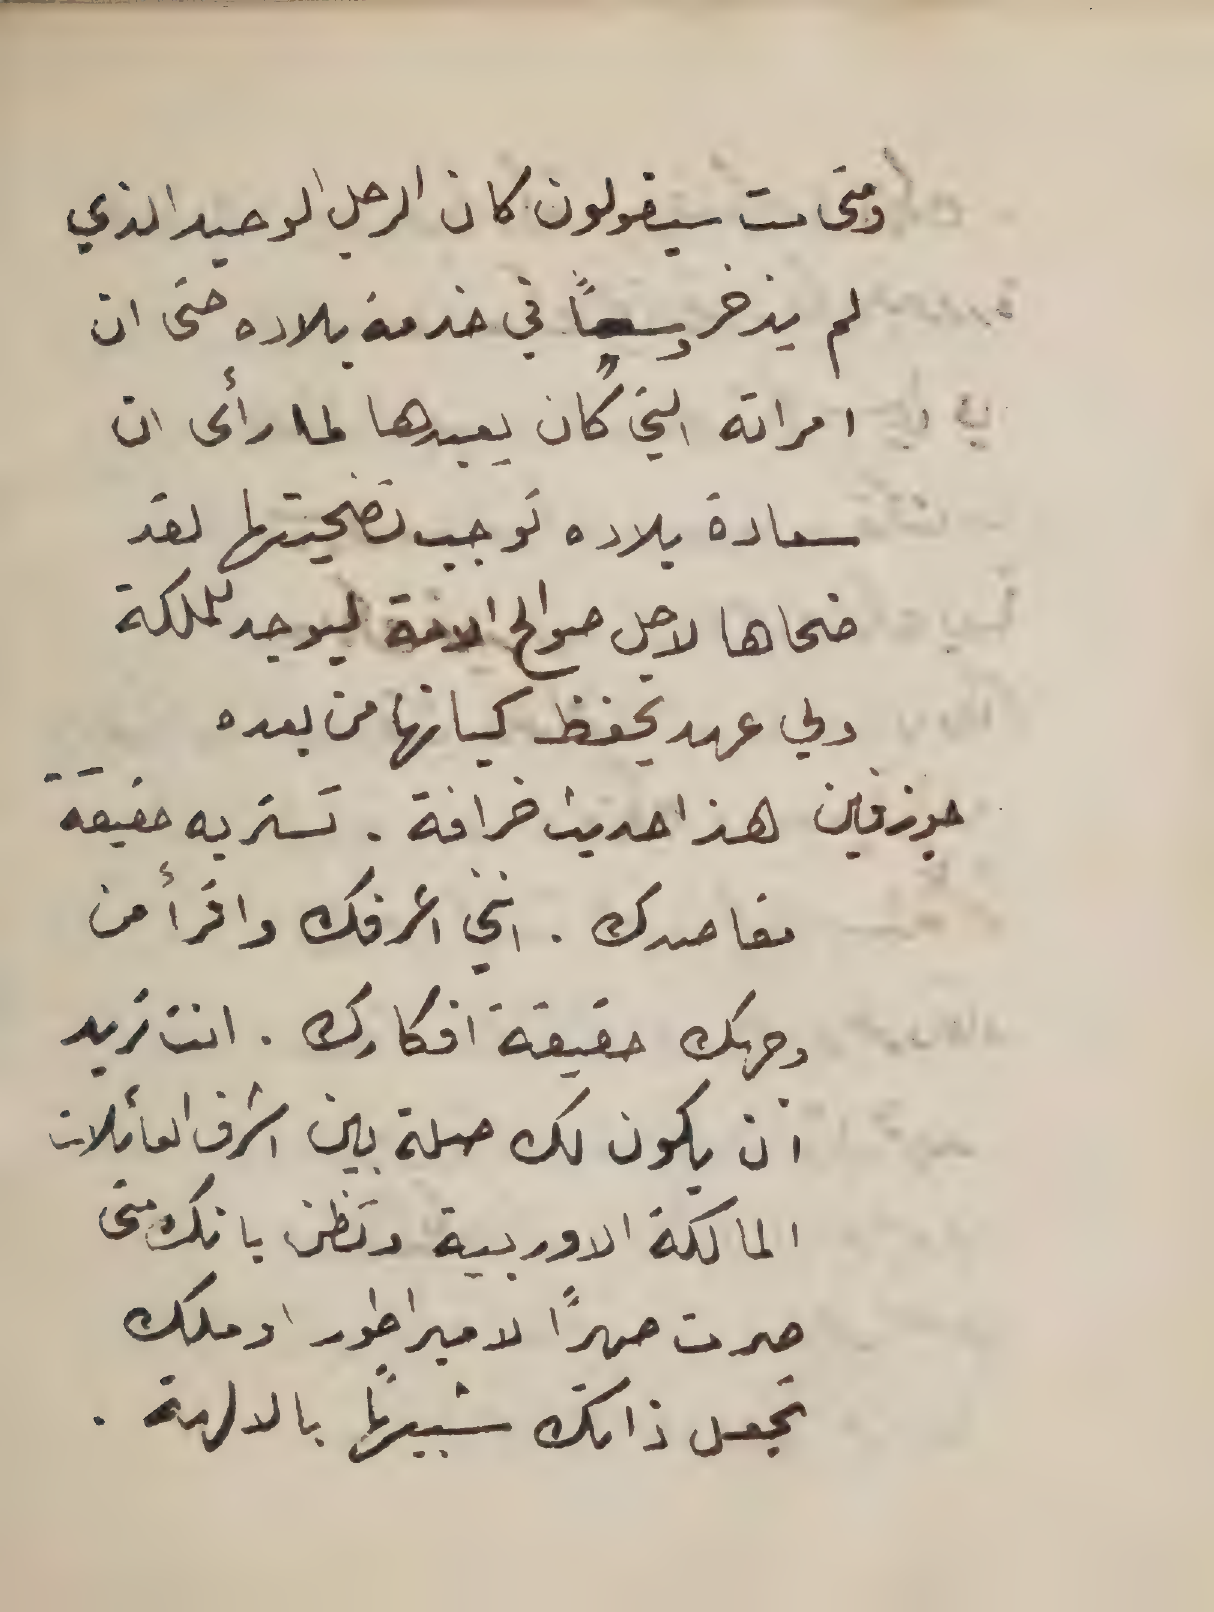 ومتى مت سيقولون كان الرجل الوحيد الذي
لم يذخر وسعاً في خدمة بلاده حتى ان
امراته التي كان يعبدها لما رأى ان
سعادة بلاده توجب تضحيتها لقد
ضحاها لاجل صوالح الامة ليوجد للملكة
ولي عهد يحفظ كيانها من بعده
جوزفين هذا حديث خرافة . تستر به حقيقة
مقاصدك . انني اعرفك واقرأ من
وجهك حقيقة افكارك . انت تريد
ان يكون لك صلة بين اشرف العائلات
المالكة الاوربية وتظن بانك متى
صرت صهرًا لامبراطور او ملك
تجعل ذاتك شبيهًا بالالهة .